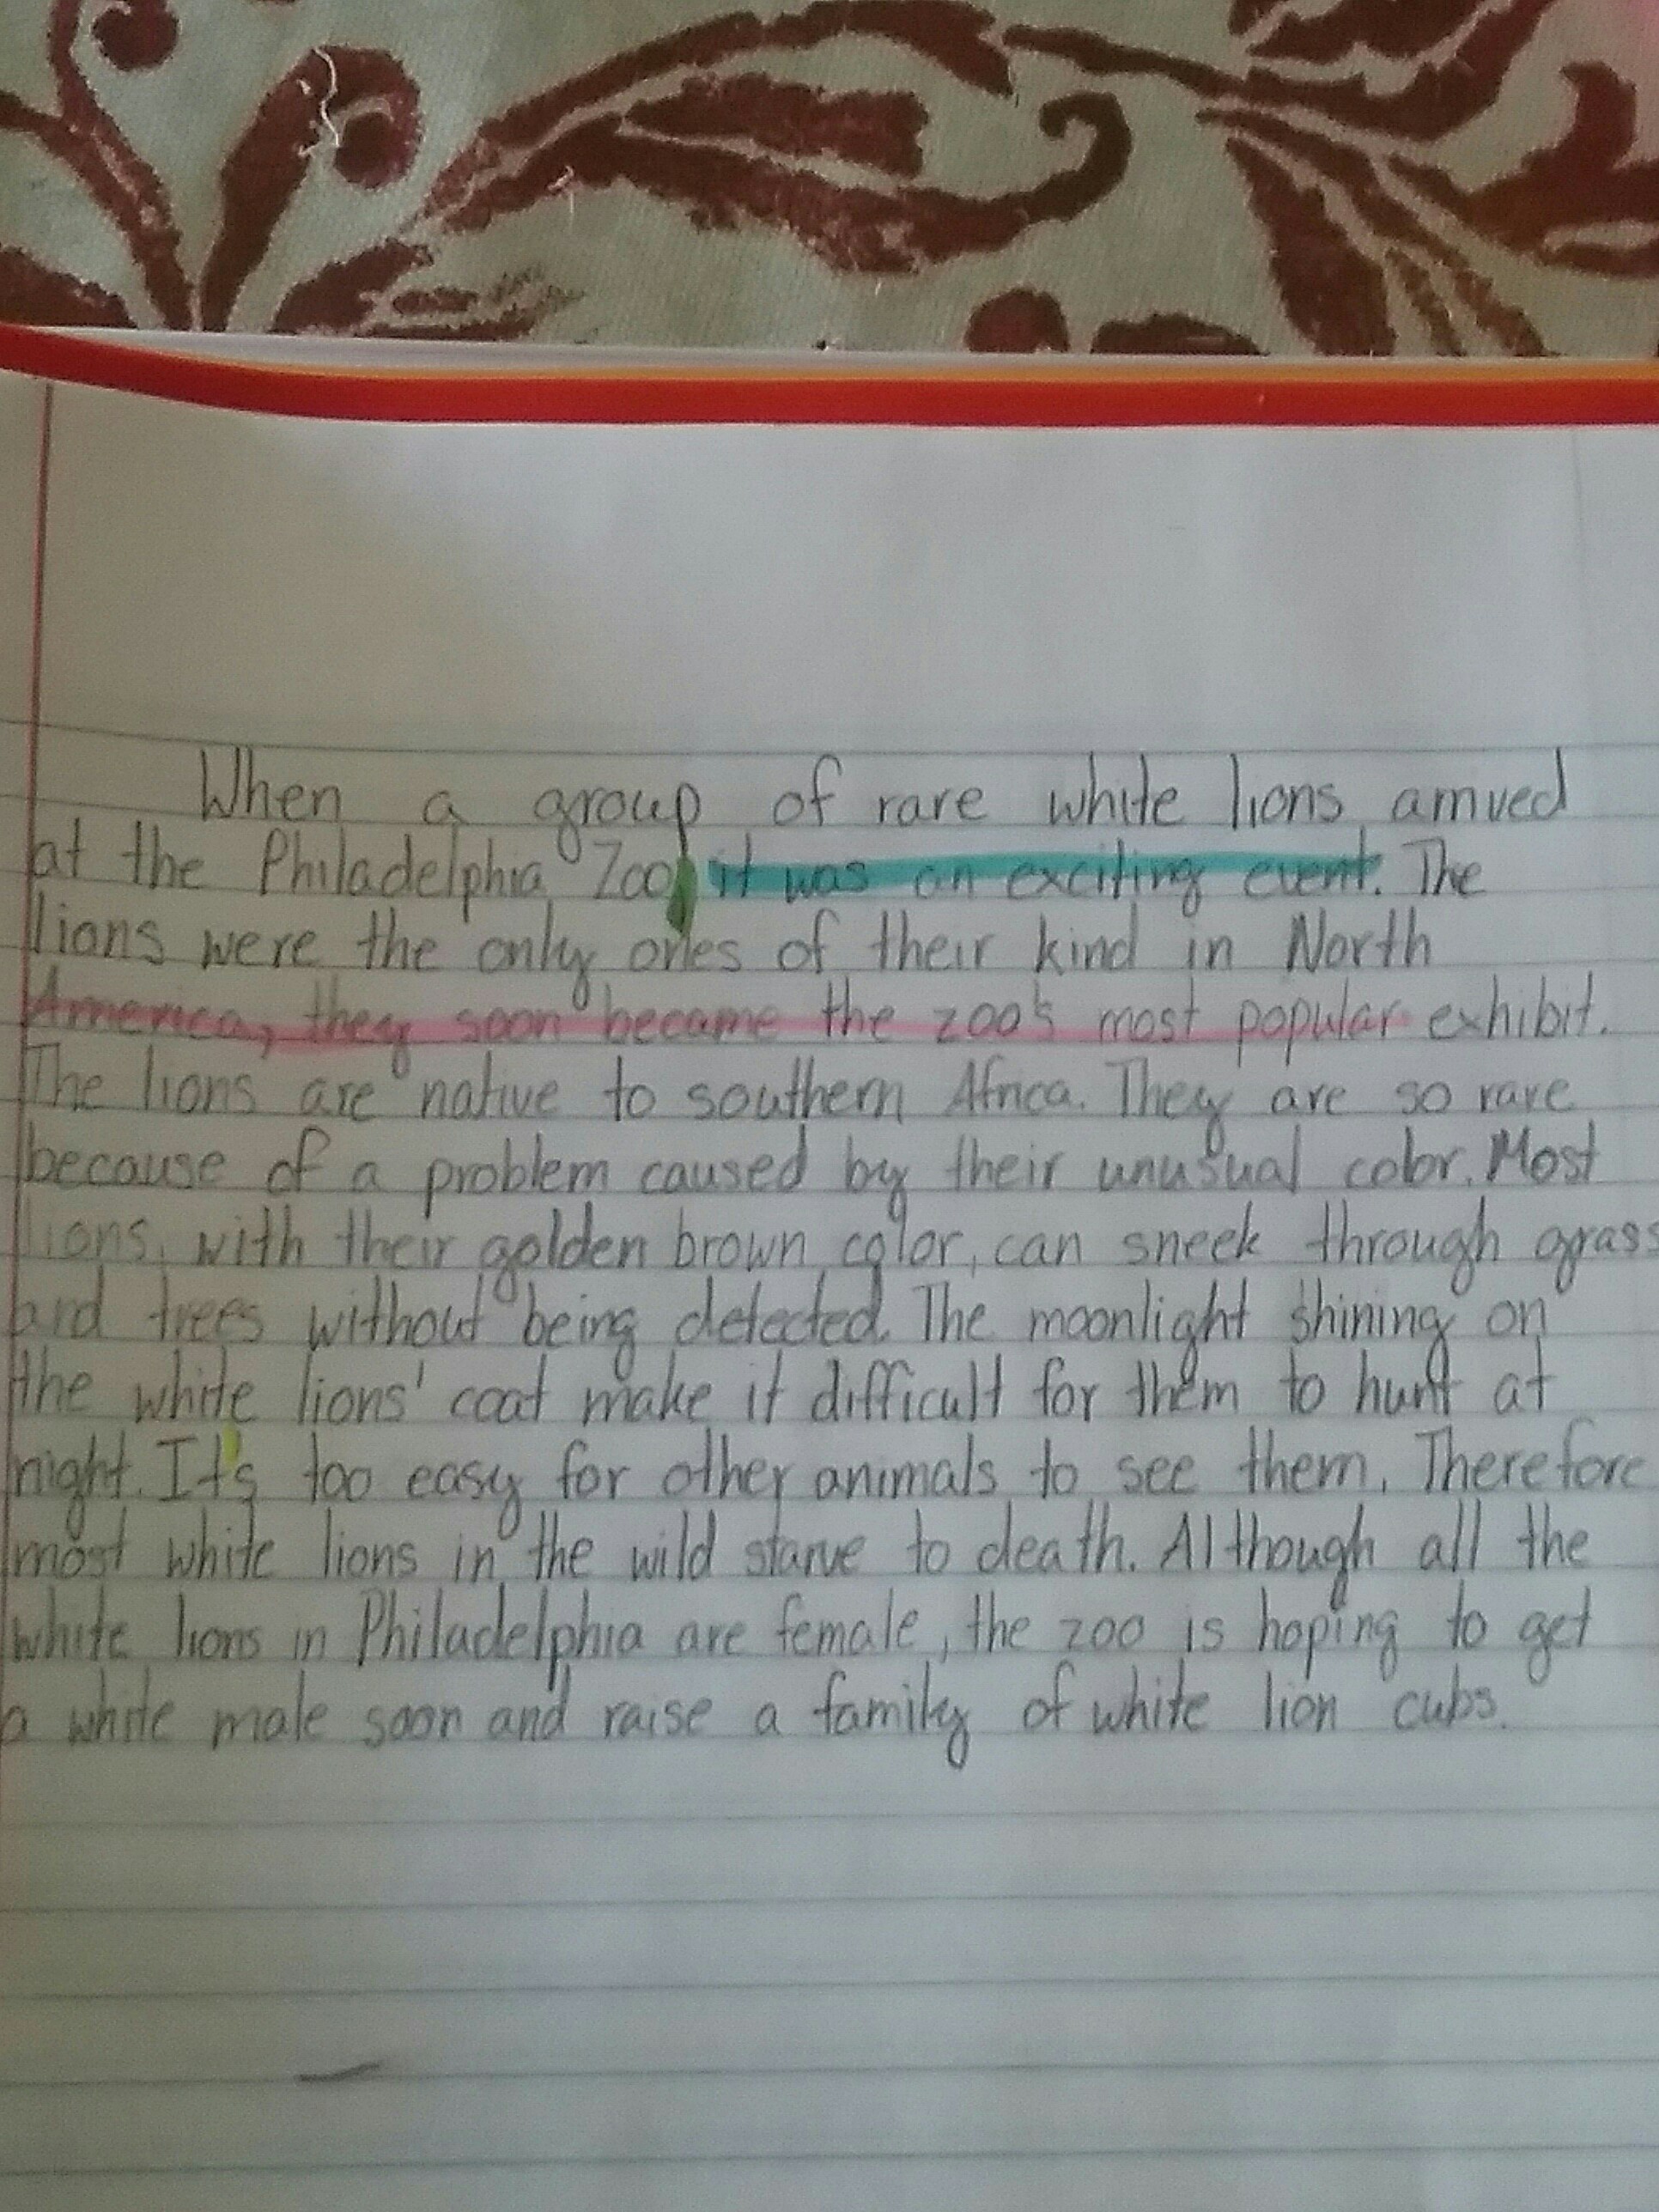 When a group of rare white lions arrived
at the Philadelphia Zoo, it was an exciting event. The
lions were the only ones of their kind in North
America, they soon became the zoo's most popular exhibit.
The lions are native to southern Africa. They are so rare
because of a problem caused by their unusual color. Most
lions, with their golden brown color, can sneek through grass
and trees without being detected. The moonlight shining on
the white lions' coat make it difficult for them to hunt at
night. It's too easy for other animals to see them. Therefore
most white lions in the wild starve to death. Although all the
white lions in Philadelphia are female, the zoo is hoping to get
a white male soon and raise a family of white lion cubs.